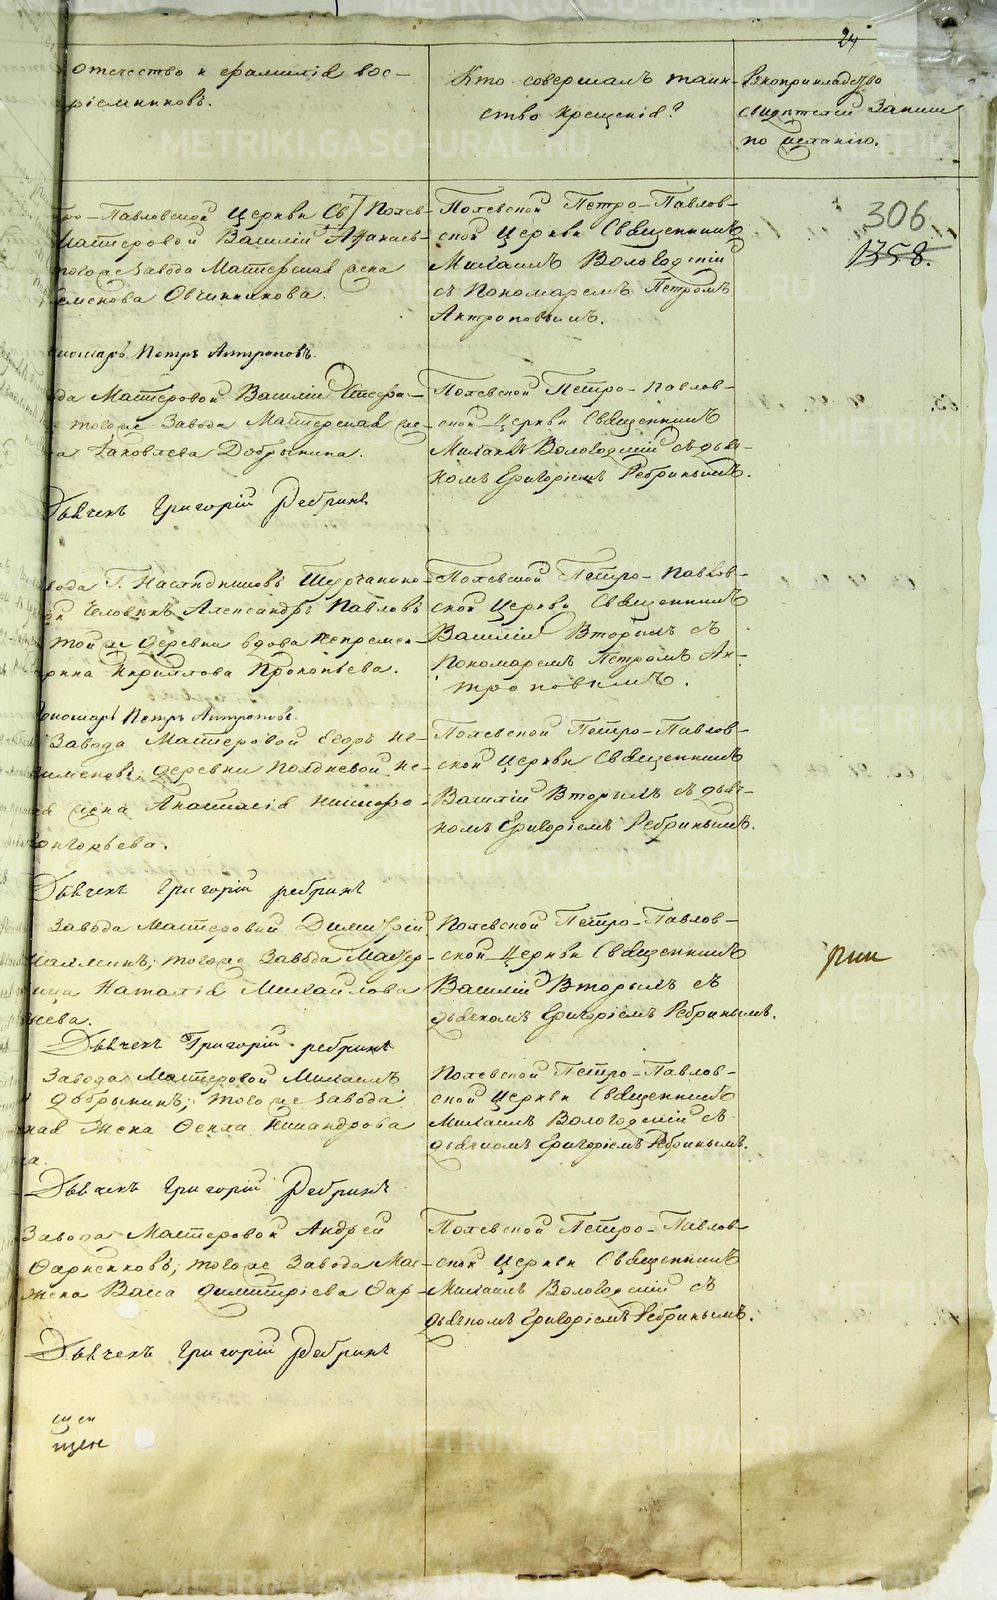 24
отечество и фамилія вос-
пріемниковъ.
Кто совершалъ таин-
ство крещенія?
Рукоприкладство
свидѣтелей записи
по желанію.
306
1358.
Петро-Павловской Церкви Св
Мастеровой Василій Аѳанась-
тогоже завода Мастерская жена
Семенова Овчинникова.
Полевской Петро-Павлов-
ской Церкви Священникъ
Михаилъ Вологодскій
съ Пономаремъ Петромъ
Антроповымъ.
Пономарь Петръ Антроповъ.
Мастеровой Василій Стефа-
тогоже Завода Мастерская же-
Яковлева Добрынина.
Полевской Петро-Павлов-
ской Церкви Священникъ
Михаилъ Вологодскій съ дьяч-
комъ Григоріемъ Ребринымъ.
Дьячекъ Григорій Ребринъ
завода Г. Наслѣдниковъ Турчанино-
Человѣкъ Александръ Павловъ
той же деревни вдова непремен-
Кирилова Прокопьева.
Полевской Петро-Павлов-
ской Церкви Священникъ
Василій Вторымъ съ
Пономаремъ Петромъ Ан-
троповымъ.
Пономарь Петръ Антроповъ.
Завода Мастеровой Егоръ
деревни Полдневой не-
жена Анастасія Никифо-
Полевской Петро-Павлов-
ской Церкви Священникъ
Василій Вторымъ съ дьяч-
комъ Григоріемъ Ребринымъ.
Дьячекъ Григорій ребринъ
Завода Мастеровой Димитрій
тогоже Завода Мастер-
Наталія Михайлова
Полевской Петро-Павлов-
ской Церкви Священникъ
Василій Вторымъ съ
дьячкомъ Григоріемъ Ребринымъ.
Дьячекъ Григорій ребринъ
Завода Мастеровой Михаилъ
Добрынинъ; тогоже завода
жена Ѳекла Никандрова
Полевской Петро-Павлов-
ской Церкви Священникъ
Михаилъ Вологодскій съ
дьячкомъ Григоріемъ Ребринымъ.
Дьячекъ Григорій Ребринъ
Завода Мастеровой Андрей
тогоже Завода Мас-
жена Васса Димитріева
Полевской Петро-Павлов-
ской Церкви Священникъ
Михаилъ Вологодскій съ
дьячкомъ Григоріемъ Ребринымъ.
Дьячекъ Григорій Ребринъ
METRIKI.GASO-URAL.RU